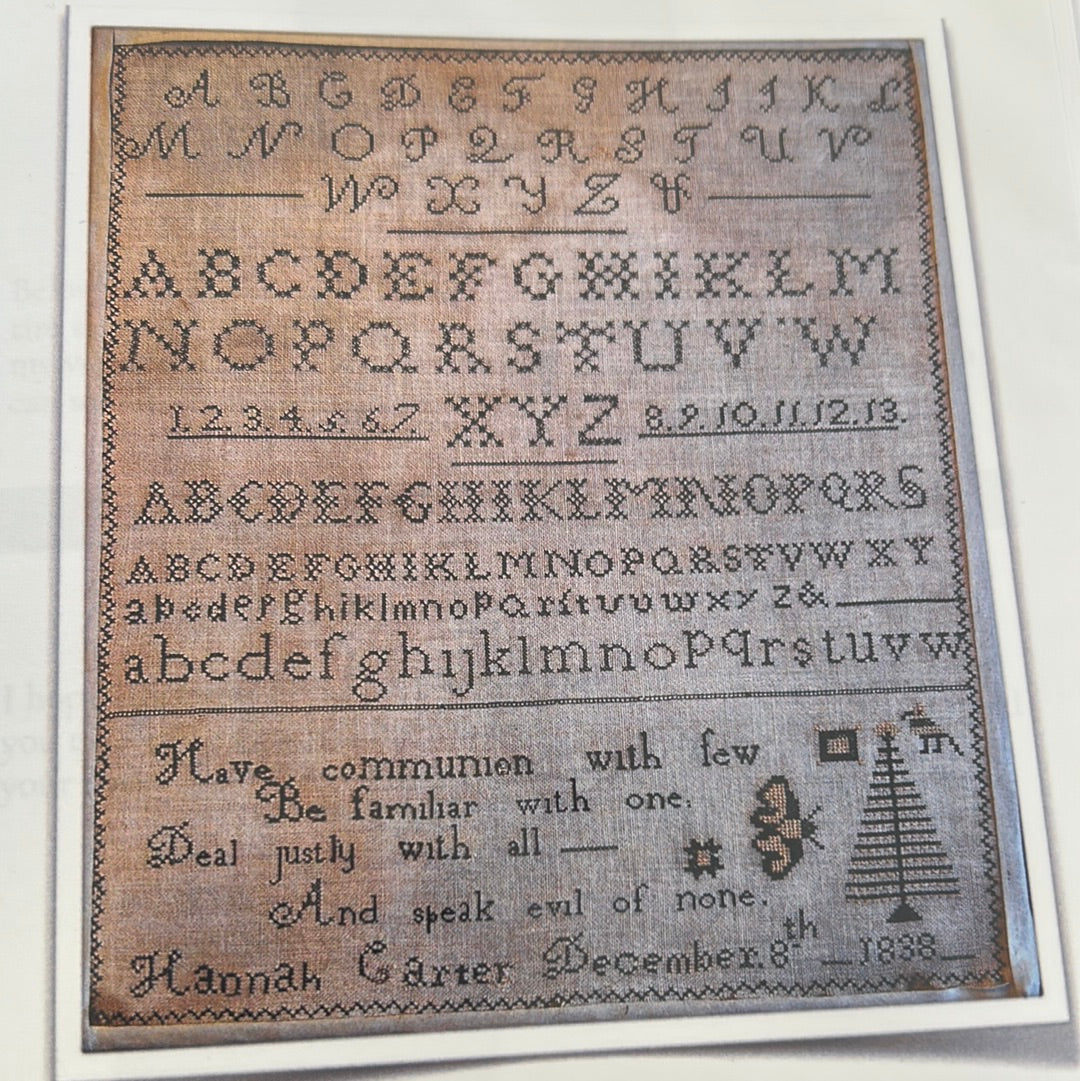 A B C D E F G H I I K L
M N O P Q R S T U V
W X Y Z &
A B C D E F G H I K L M
N O P Q R S T U V W
1.2.3.4.5.6.7 X Y Z 8.9.10.11.12.13.
A B C D E F G H I K L M N O P Q R S
A B C D E F G H I K L M N O P Q R S T V W X Y
a b c d e f g h i k l m n o p q r ſ t v u w x y z &
a b c d e f g h i j k l m n o p q r s t u v w
Have communion with few
Be familiar with one.
Deal justly with all —
And speak evil of none.
Hannah Carter December. 8th 1838